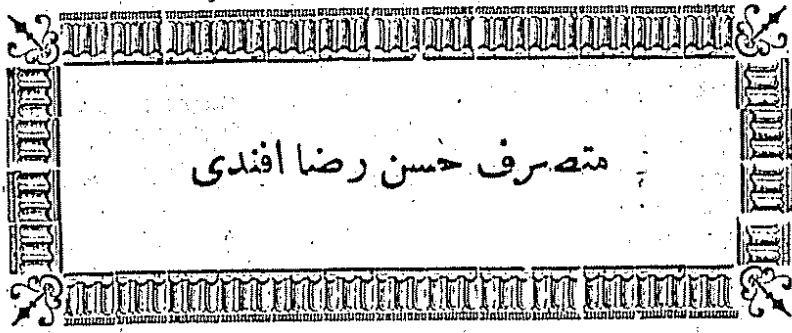 متصرف حسن رضا افندی